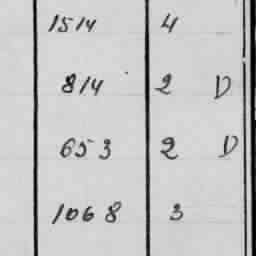 1514 4
814 2 D
653 2 D
1068 3